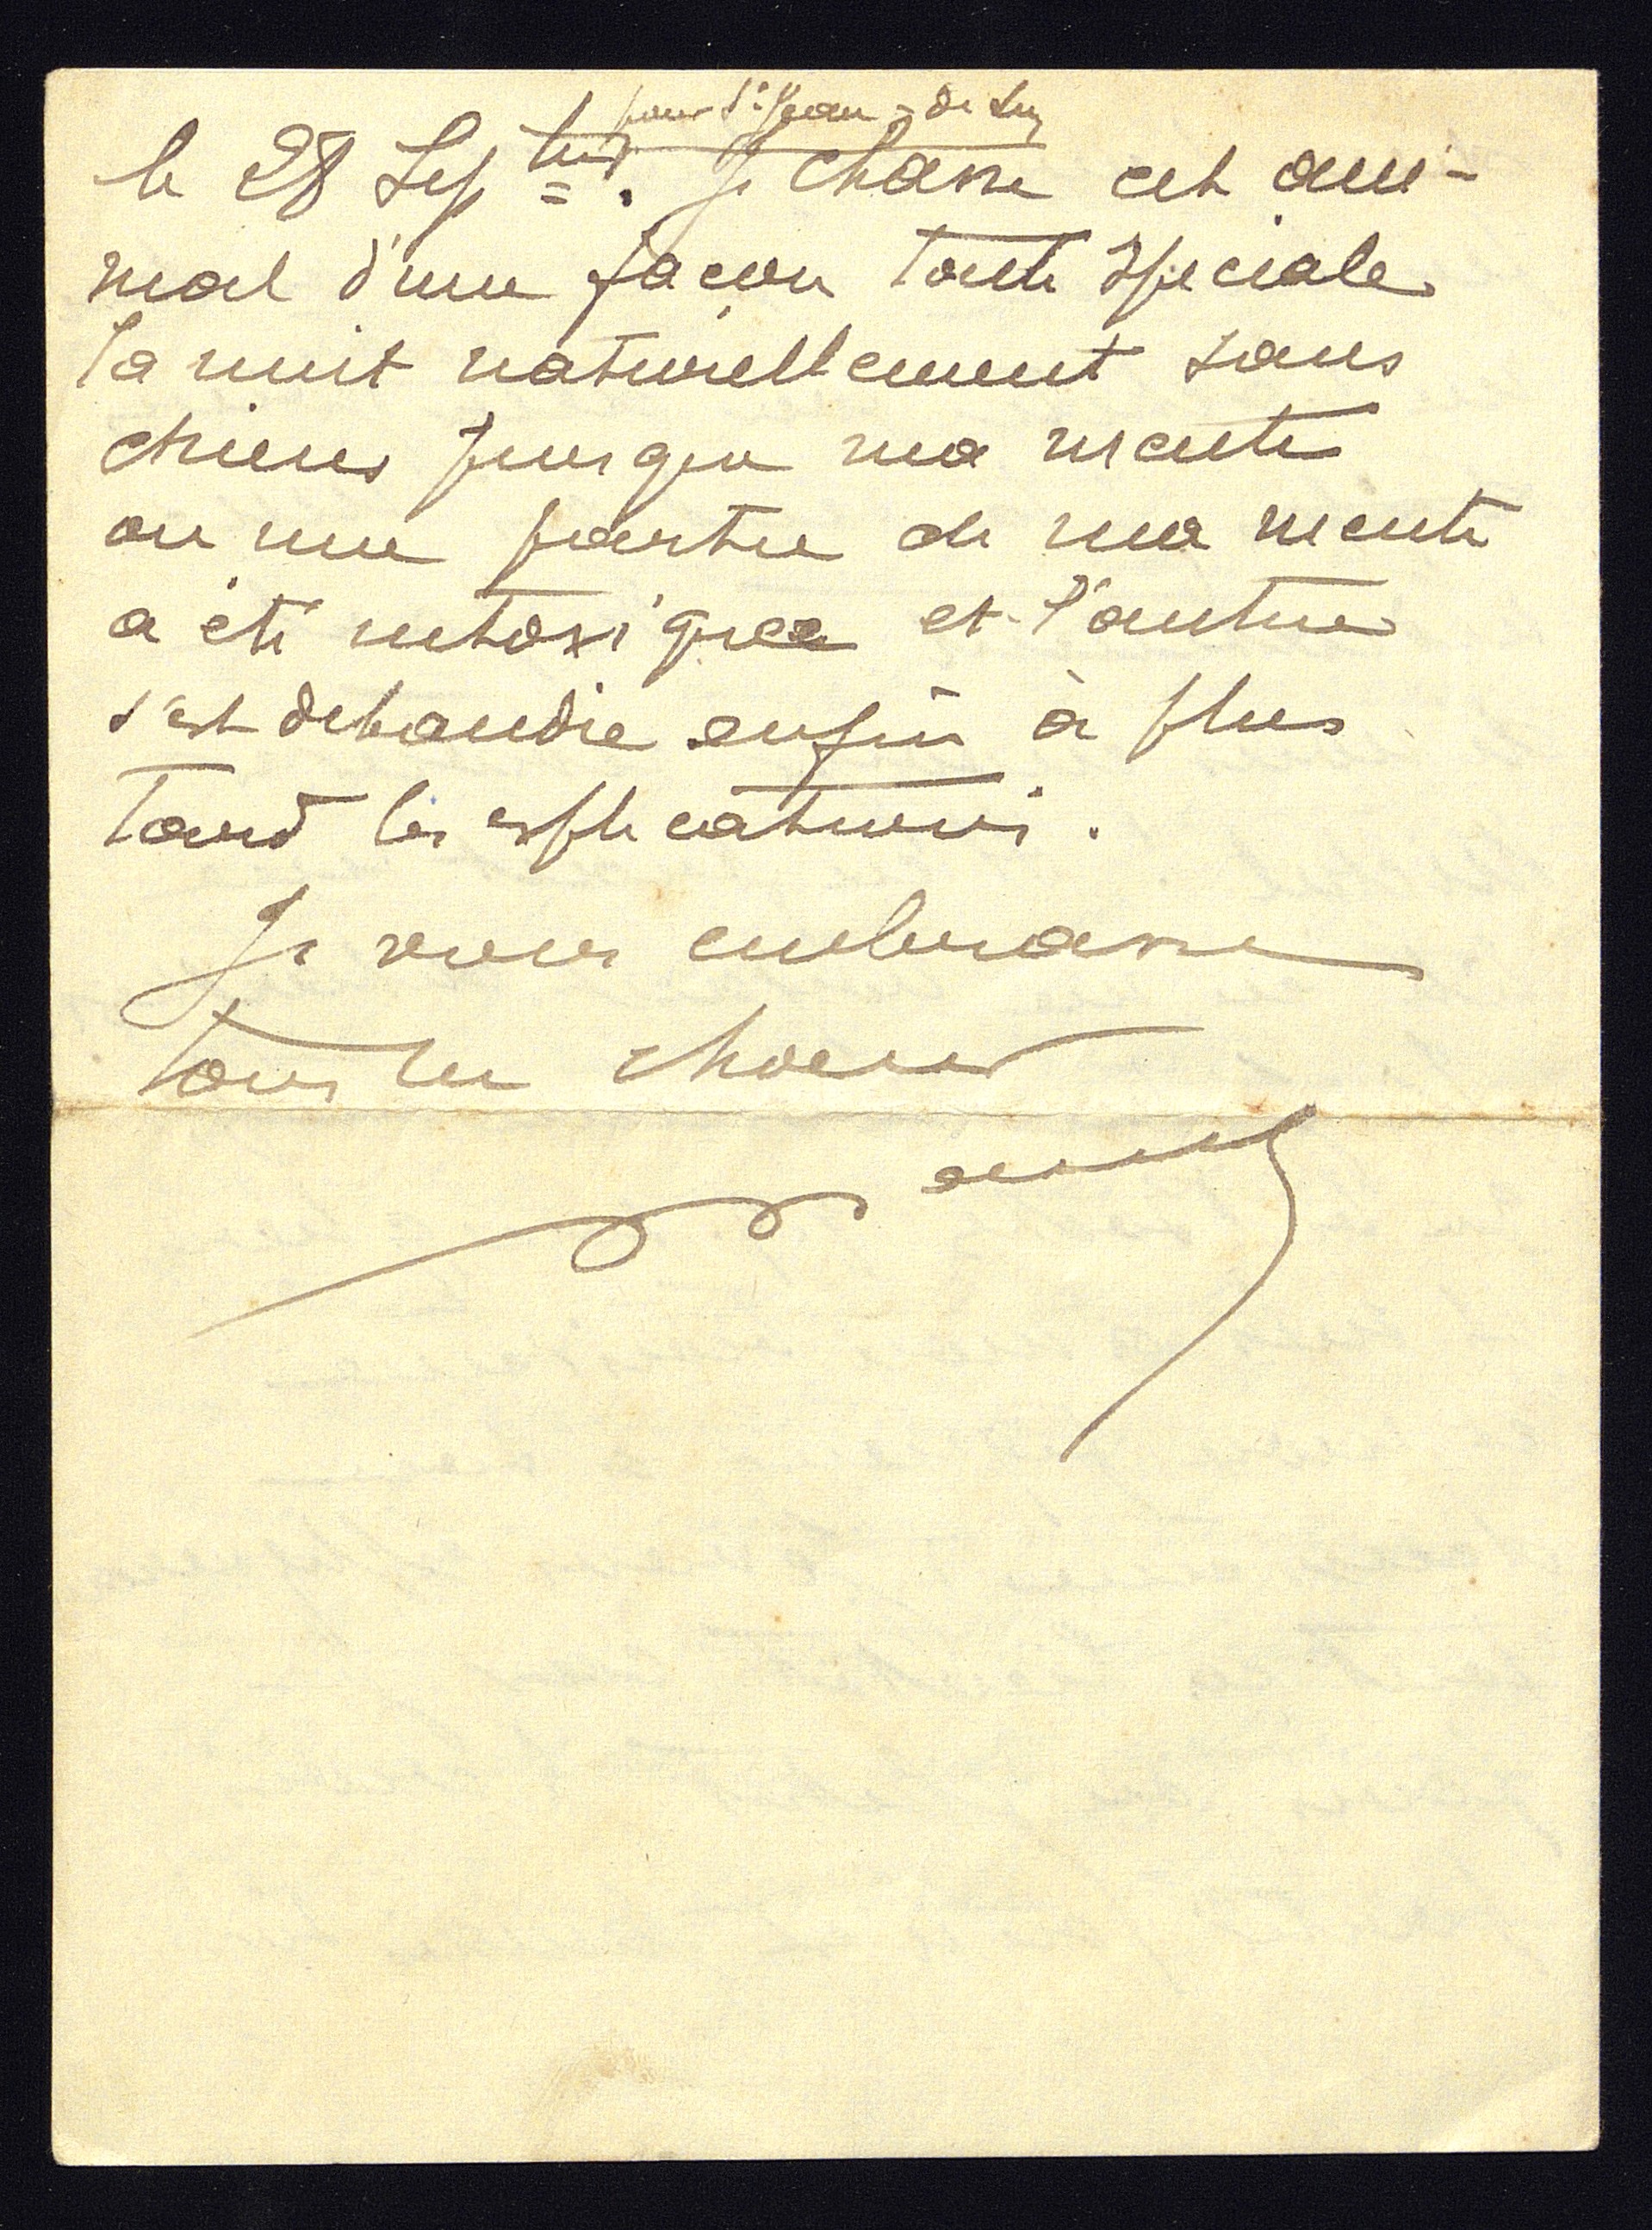 pour St Jean-de Luz
le 28 Septbre. Je chasse cet ani-
mal d'une façon toute spéciale
la nuit naturellement sans
chiens puisque ma meute
ou une partie de ma meute
a été intoxiquée et l'autre
s'est debandée enfin à plus
tard les explications.
Je vous embrasse
tous les